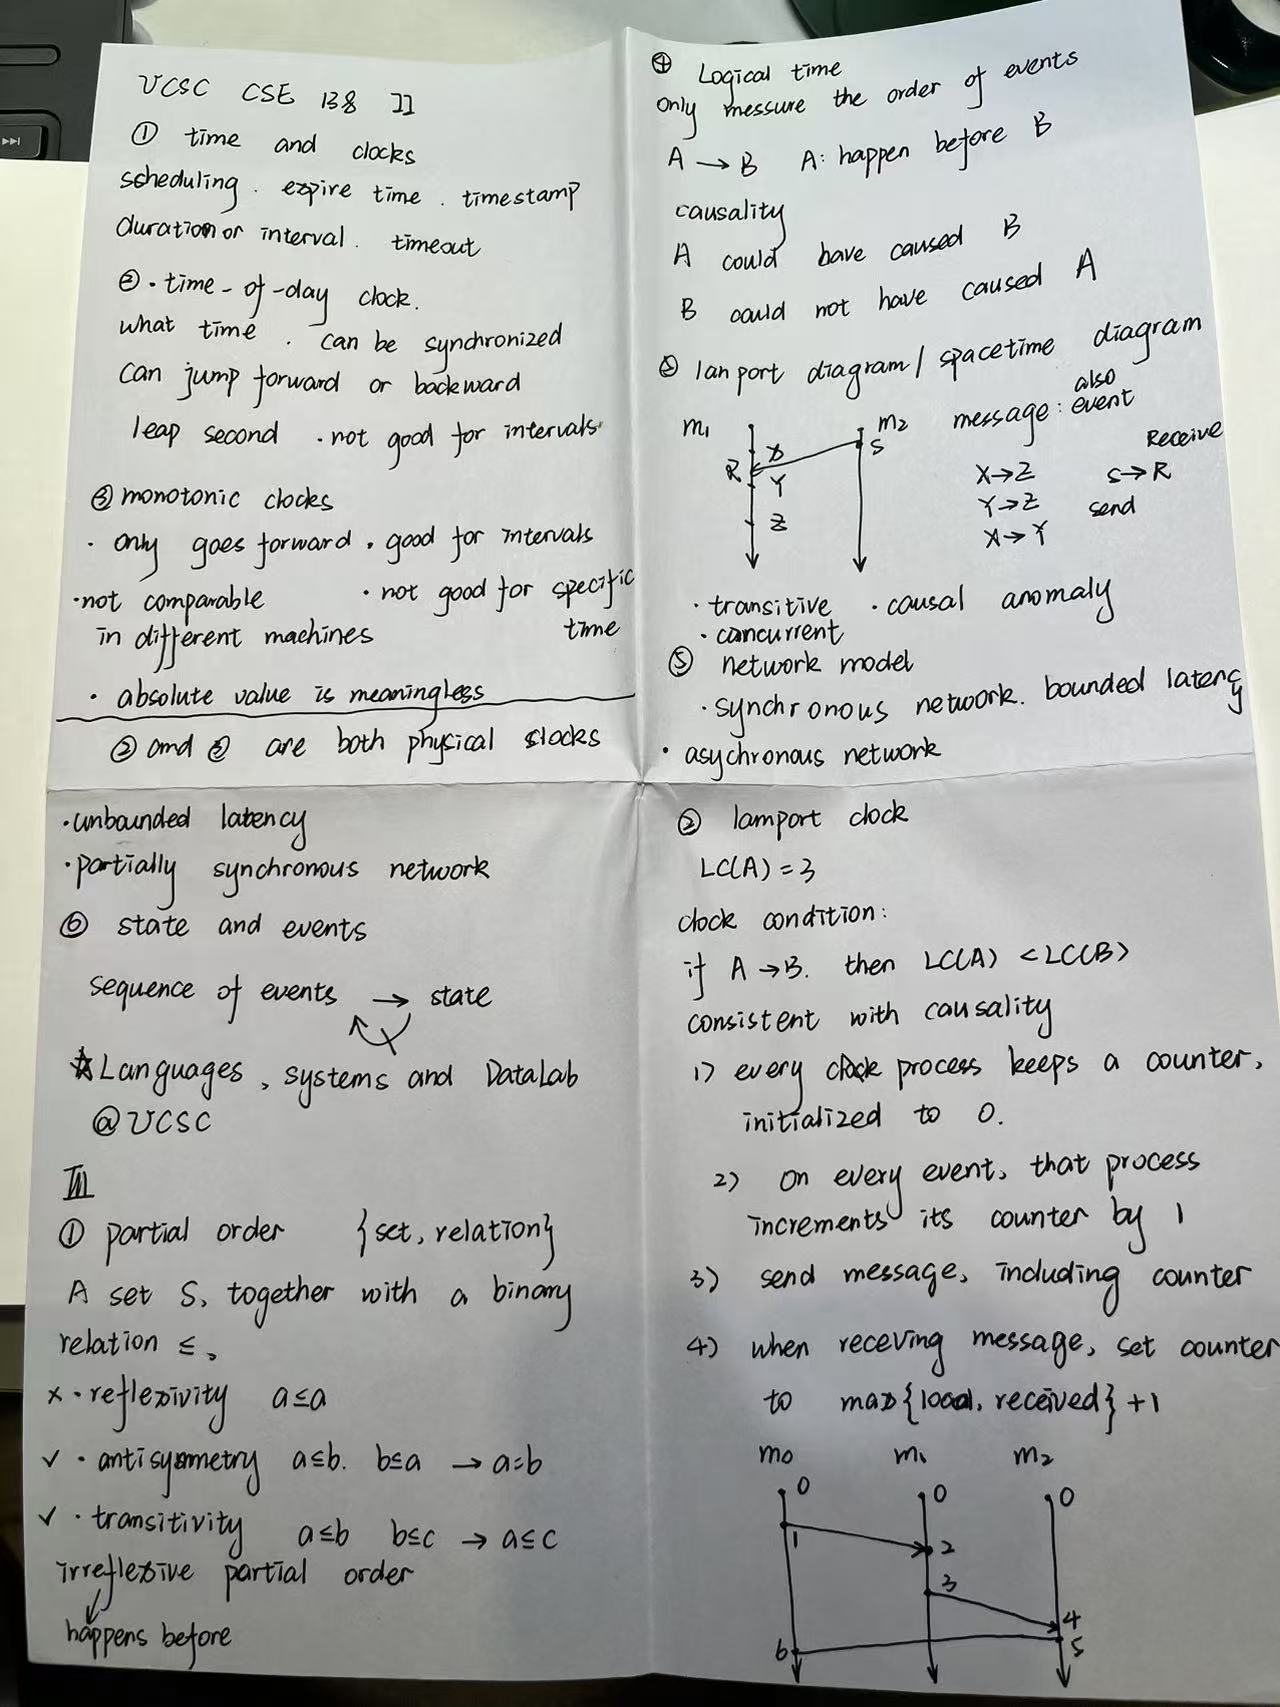 UCSC CSE 138 II
① time and clocks
scheduling . expire time . timestamp
duration or interval . timeout
② · time-of-day clock.
what time . can be synchronized
can jump forward or backward
leap second · not good for intervals
③ monotonic clocks
· only goes forward . good for intervals
· not comparable · not good for specific
in different machines time
· absolute value is meaningless
② and ③ are both physical slocks
④ Logical time
only messure the order of events
A → B A: happen before B
causality
A could have caused B
B could not have caused A
⑤ lanport diagram / spacetime diagram
m₁ m₂ message: also event
R X S
Y
Z
X→Z S→R Receive
Y→Z send
X→Y
· transitive · causal anomaly
· concurrent
⑤ network model
· synchronous network. bounded latency
· asychronous network
· unbounded latency
· partially synchronous network
⑥ state and events
sequence of events → state
☆ Languages, systems and DataLab
@UCSC
III
① partial order {set, relation}
A set S, together with a binary
relation ≤,
x · reflexivity a≤a
✓ · antisymmetry a≤b. b≤a → a=b
✓ · transitivity a≤b b≤c → a≤c
irreflexive partial order
happens before
② lamport clock
LC(A) = 3
clock condition:
if A → B. then LC(A) < LC(B)
consistent with causality
1) every process keeps a counter,
initialized to 0.
2) on every event, that process
increments its counter by 1
3) send message, including counter
4) when receving message, set counter
to max{local, received} +1
m₀ m₁ m₂
0 0 0
1 2
3
4
6 5